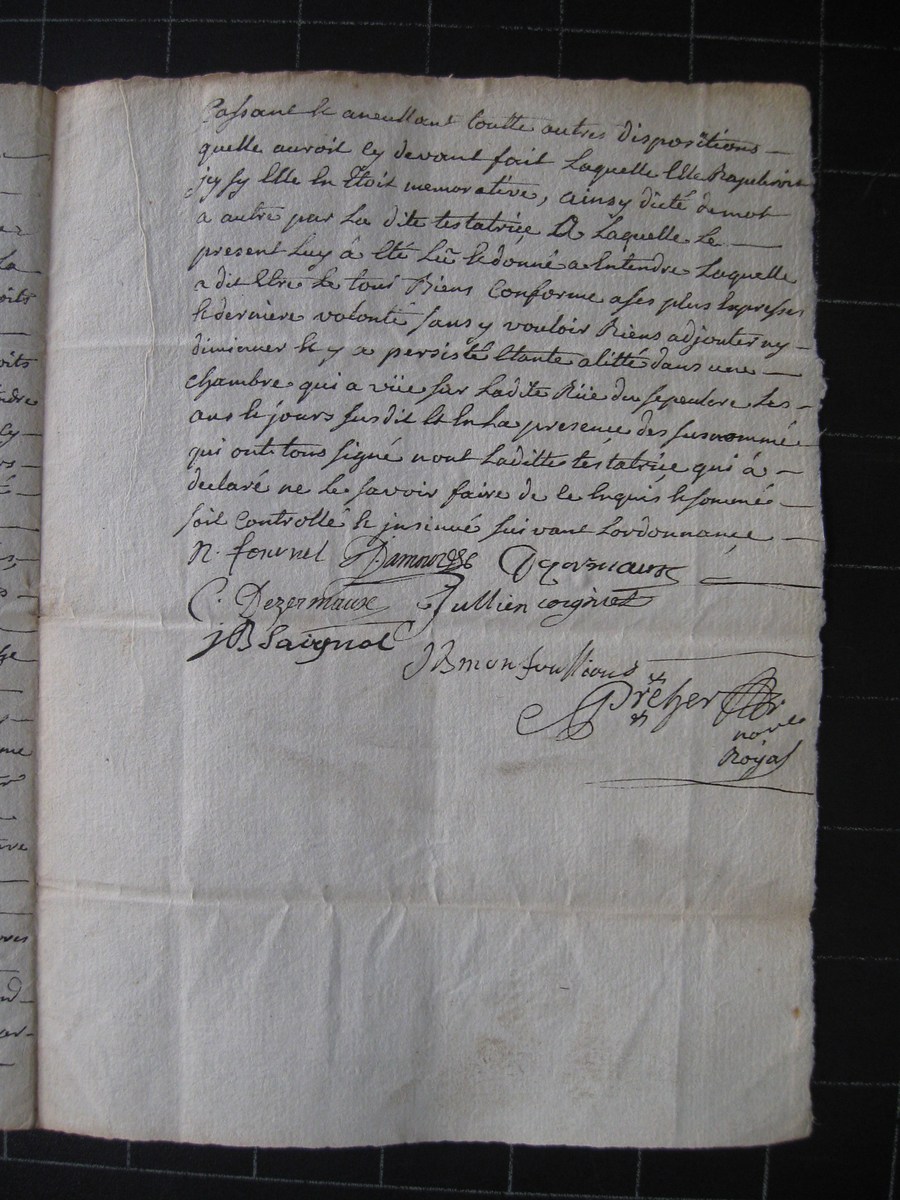 Cassant et aneullant toutte autres dispositions
quelle auroit cy devant fait Laquelle Elle Rapelleroit
jcy sy Elle En Étoit memorative, ainsy dicté demot
a autre par La dite testatrice A Laquelle Le
present Luy â Eté Lû et donné a Entendre Laquelle
a dit Etre le tout Biens Conforme ases plus Expresses
et dernière volonté sans y vouloir Riens adjouter ny
diminuer et y a persisté Etante alitté dans une
chambre qui a vüe sur Ladite Rüe du sepulcre Les
ans et jours susdit Et En La presence des susnommé
qui ont tous signé nont Laditte testatrice qui â
declaré ne le savoir faire de ce Enquis et sommé
soit Controllé et insinué suivant Lordonnance
N. fournel Damour
C. Dezermaux Jullien
JB Saignol